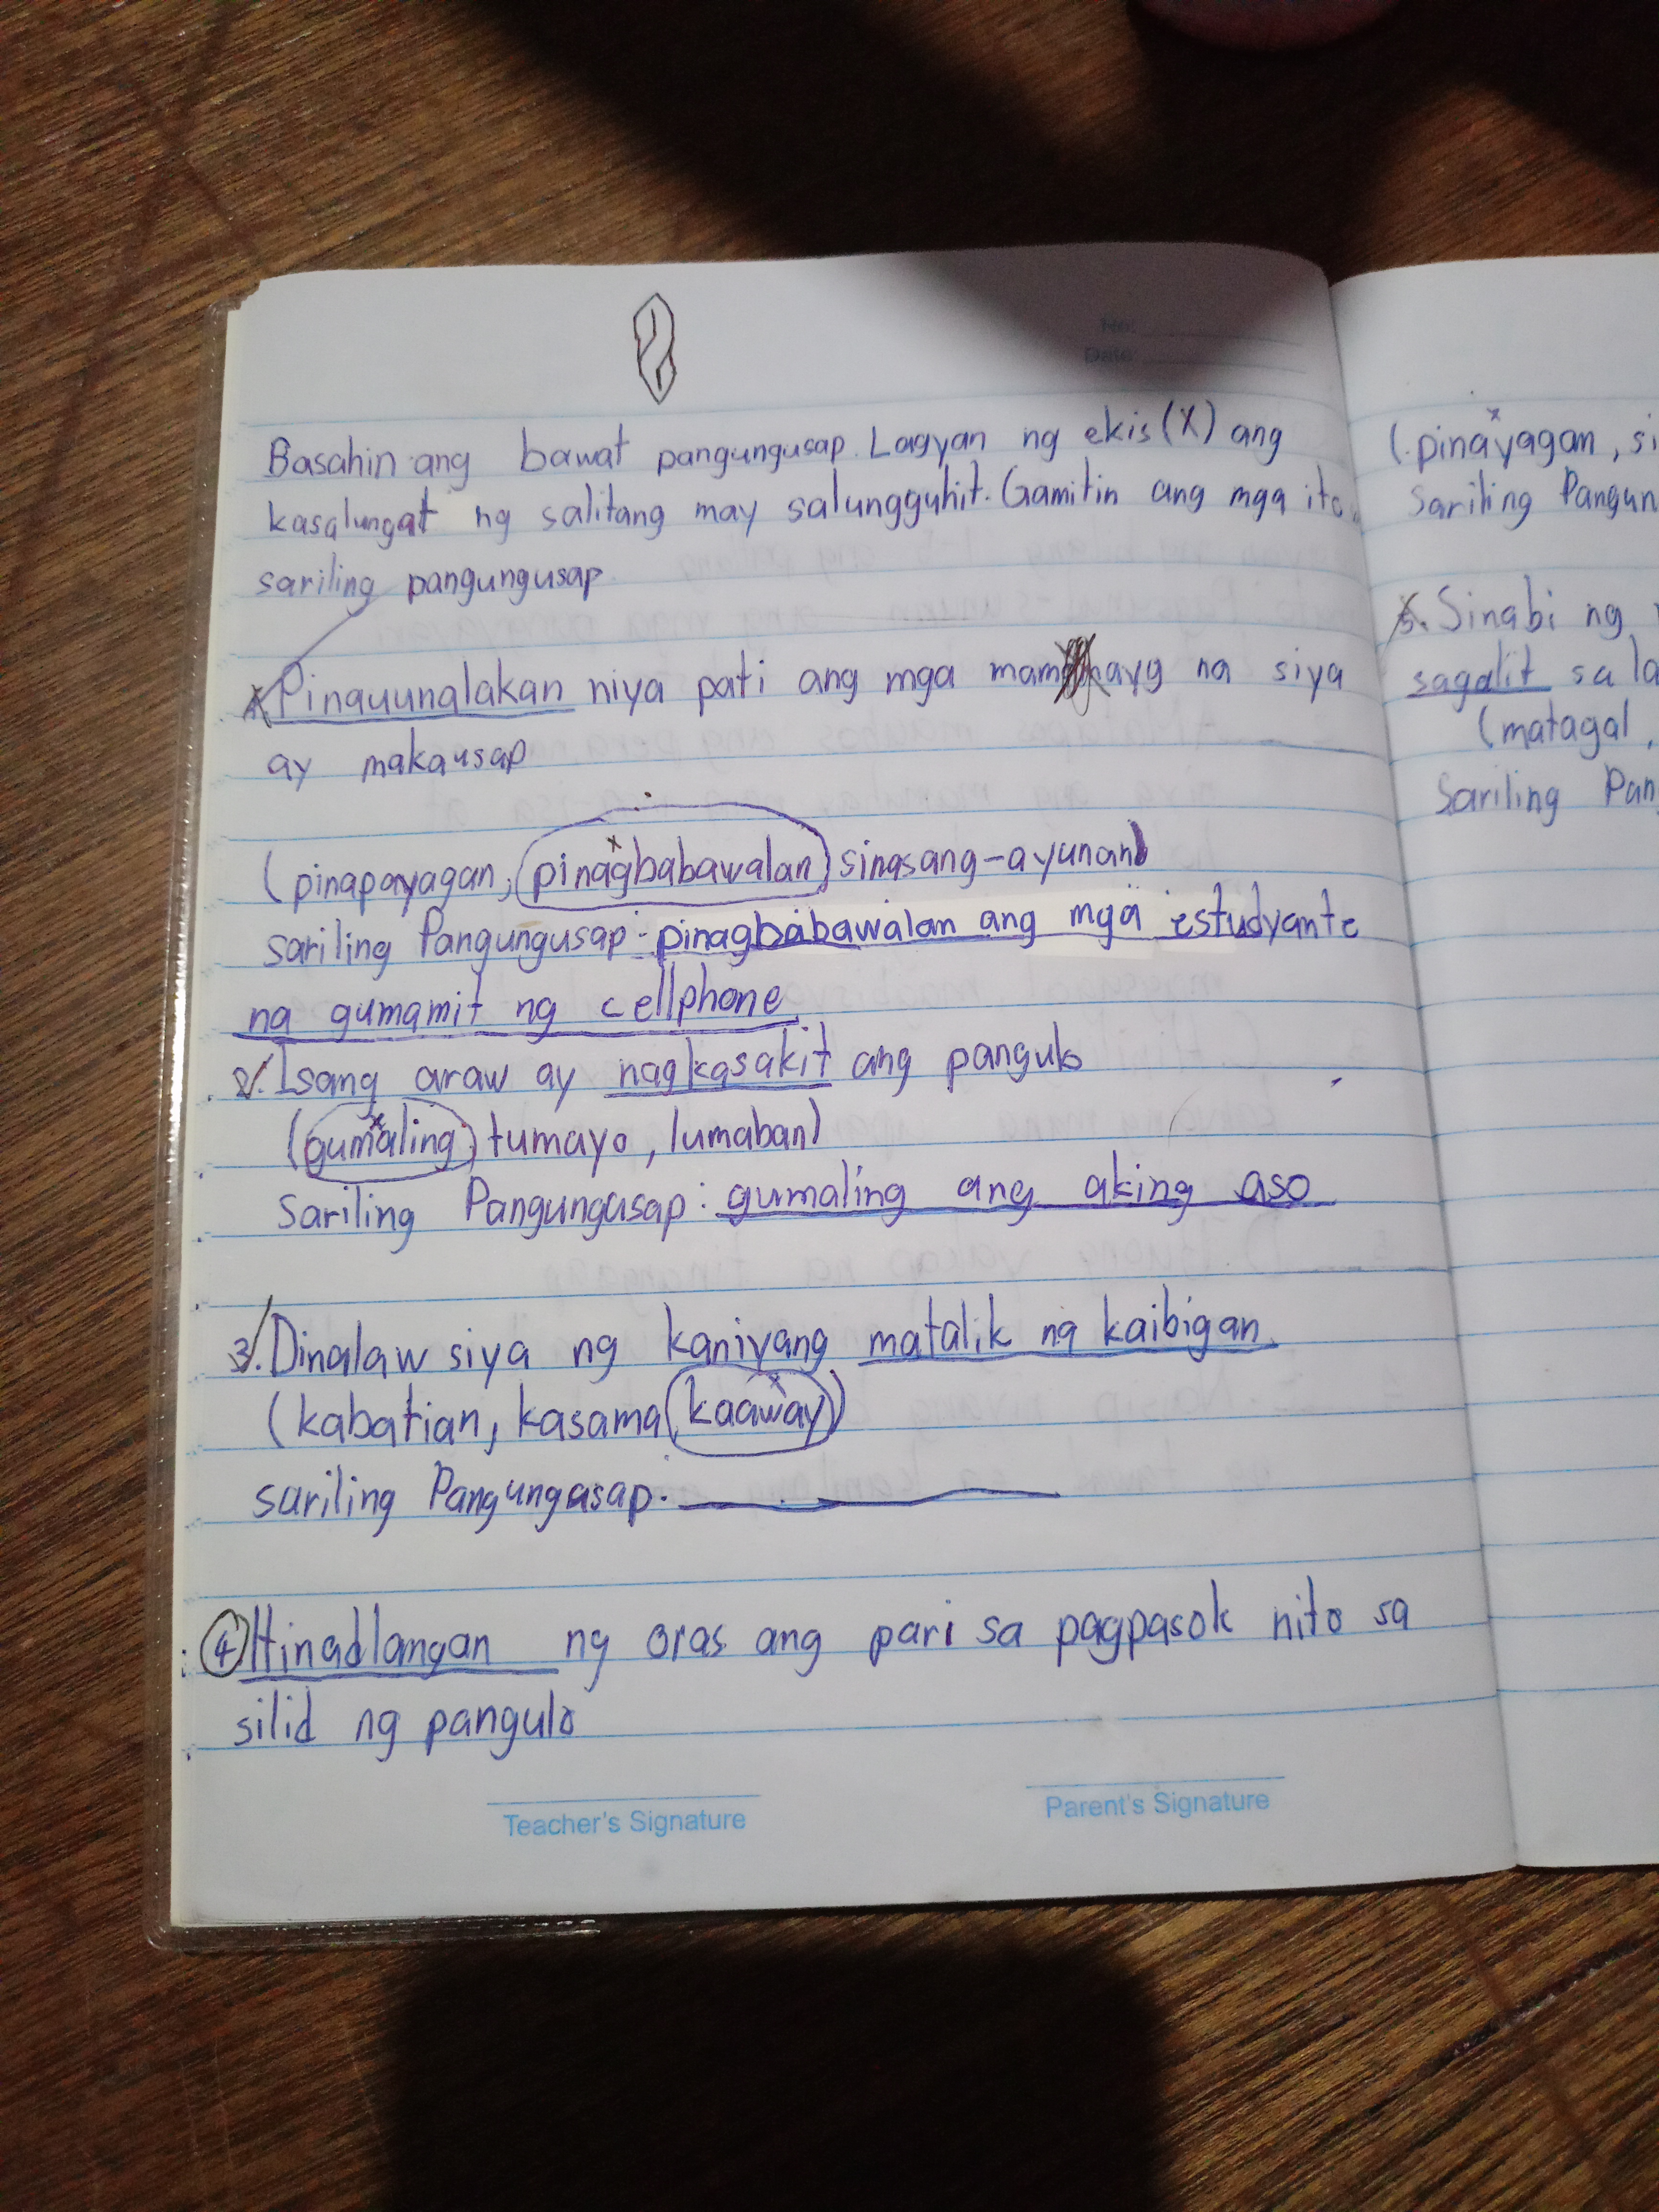 No:
Date:
Basahin ang bawat pangungusap. Lagyan ng ekis (X) ang
kasalungat ng salitang may salungguhit. Gamitin ang mga ito
sariling pangungusap
Pinauunalakan niya pati ang mga na siya
ay makausap
(pinapayagan, pinagbabawalan, sinasang-ayunan)
sariling Pangungusap: pinagbabawalan ang mga estudyante
na gumamit ng cellphone
2. Isang araw ay nagkasakit ang pangulo
(gumaling, tumayo, lumaban)
Sariling Pangungusap: gumaling ang aking aso
3. Dinalaw siya ng kaniyang matalik na kaibigan.
(kabatian, kasama, kaaway)
sariling Pangungasap.
4 Hinadlangan ng oras ang pari sa pagpasok nito sa
silid ng pangulo
Teacher's Signature
Parent's Signature
(pinayagan, si
Sariling Pangun
5. Sinabi ng
sagalit sa la
(matagal,
Sariling Pan